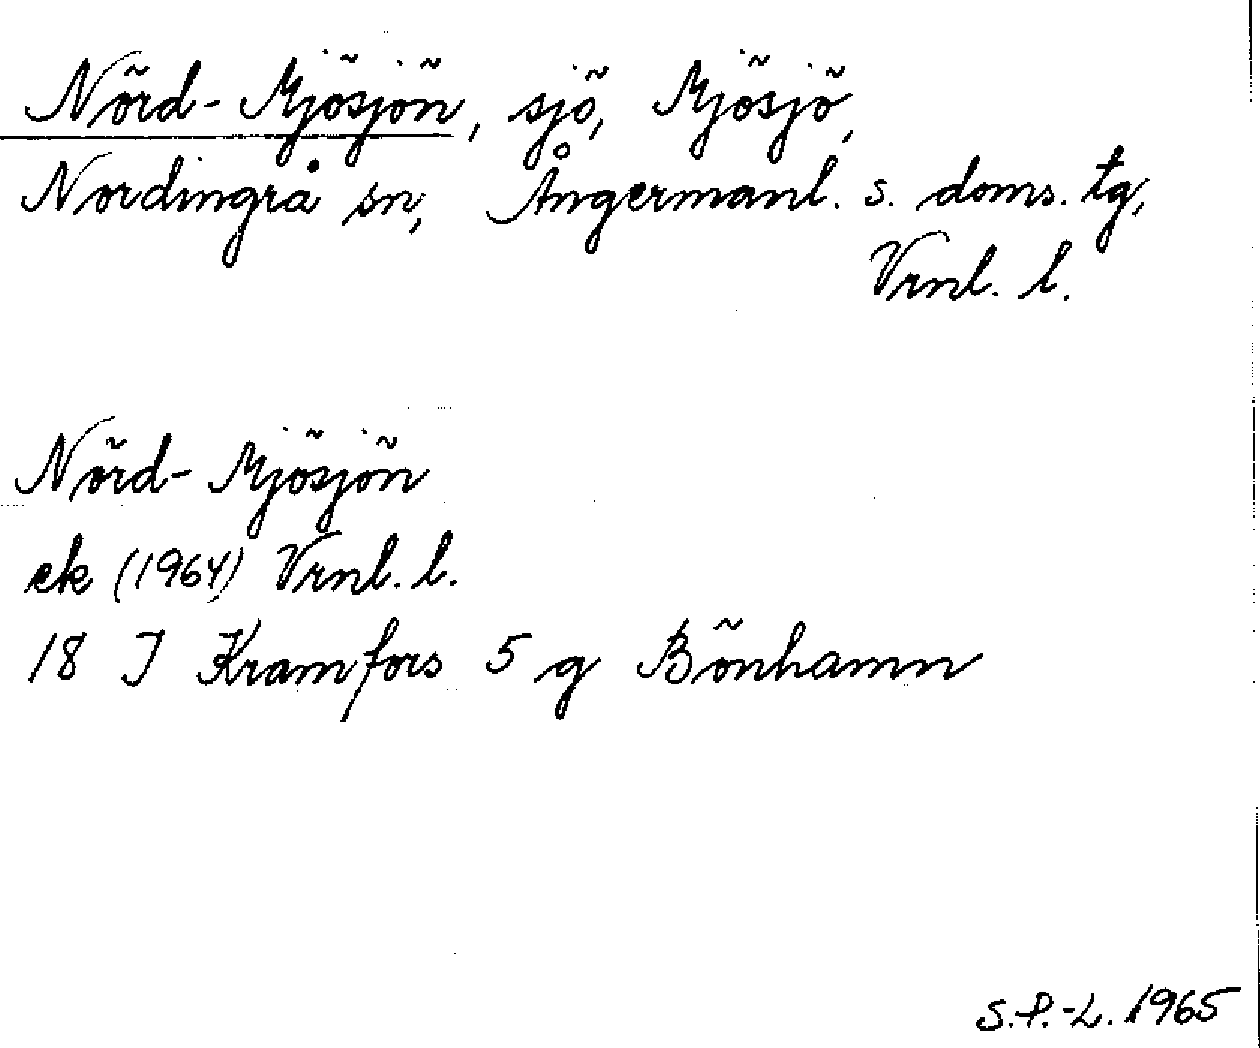 Nörd-Mjösjön, sjö, Mjösjö,
Nordingrå sn, Ångermanl. s. doms. tg,
Vrnl. l.
Nörd-Mjösjön
ek (1964) Vrnl. l.
18 J Kramfors 5 g Bönhamn
S.P.-L. 1965